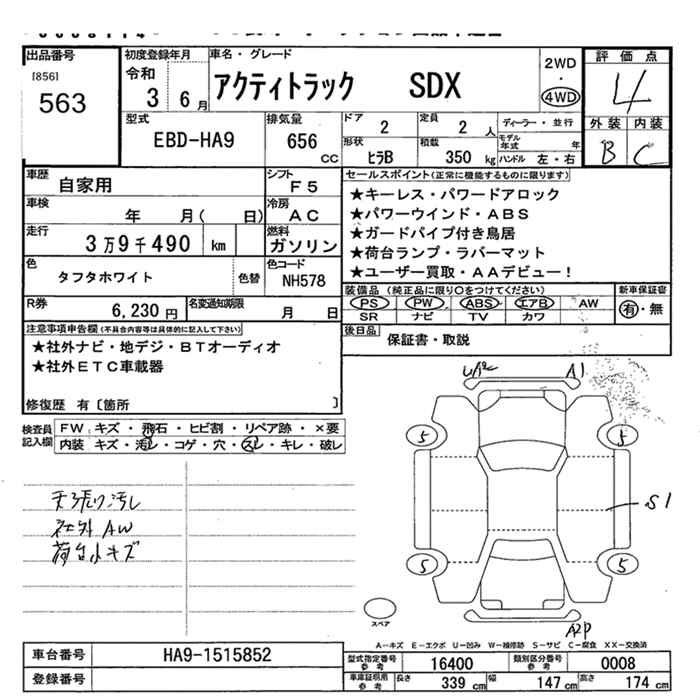 出品番号
[856]
563
初度登録年月
令和
3 6月
車名・グレード
アクティトラック SDX
2WD
・
4WD
評価点
4
外装 内装
B C
型式
EBD-HA9
排気量
656
cc
ドア
2
定員
2 人
形状
ヒラB
積載
350 kg
ディーラー・並行
モデル
年式 年
ハンドル 左・右
車歴
自家用
シフト
F5
車検
年 月( 日)
冷房
AC
走行
3万9千490 km
燃料
ガソリン
色
タフタホワイト
色替
色コード
NH578
R券
6,230円
名変通知期限
月 日
セールスポイント(正常に機能するものに限ります)
★キーレス・パワードアロック
★パワーウインド・ABS
★ガードパイプ付き鳥居
★荷台ランプ・ラバーマット
★ユーザー買取・AAデビュー!
装備品(純正品に限り○をつけてください)
PS PW ABS エアB AW
SR ナビ TV カワ
新車保証書
有・無
後日品
保証書・取説
注意事項申告欄(不具合内容等は具体的に記入して下さい)
★社外ナビ・地デジ・BTオーディオ
★社外ETC車載器
修復歴 有〔箇所 〕
検査員
記入欄
FW キズ・飛石・ヒビ割・リペア跡・×要
内装 キズ・汚レ・コゲ・穴・スレ・キレ・破レ
天張り汚し
社外AW
荷台小キズ
UA2
A1
5
5
S1
5
5
A2P
スペア
A−キズ E−エクボ U−凹み W−補修跡 S−サビ C−腐食 XX−交換済
車台番号
HA9-1515852
登録番号
型式指定番号
参考
16400
類別区分番号
参考
0008
車庫証明用
参考
長さ
339 cm
幅
147 cm
高さ
174 cm